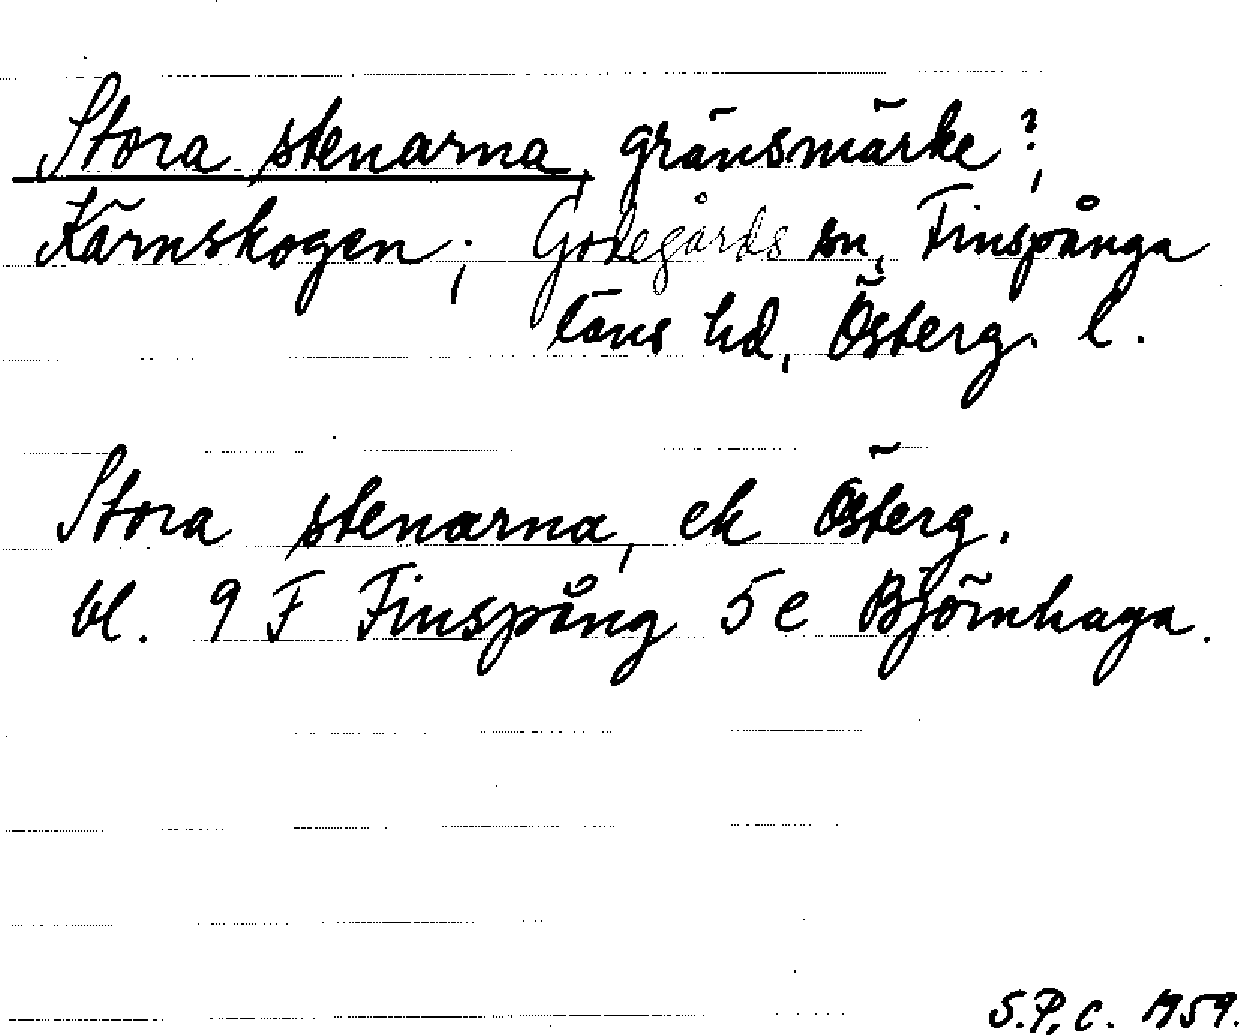 Stora stenarna, gränsmärke?,
Kärnskogen; Godegårds sn, Finspånga
läns hd, Österg. l.
Stora stenarna, ek Österg.
bl. 9 F Finspång 5 e Björnhaga.
S.P,c. 1959.